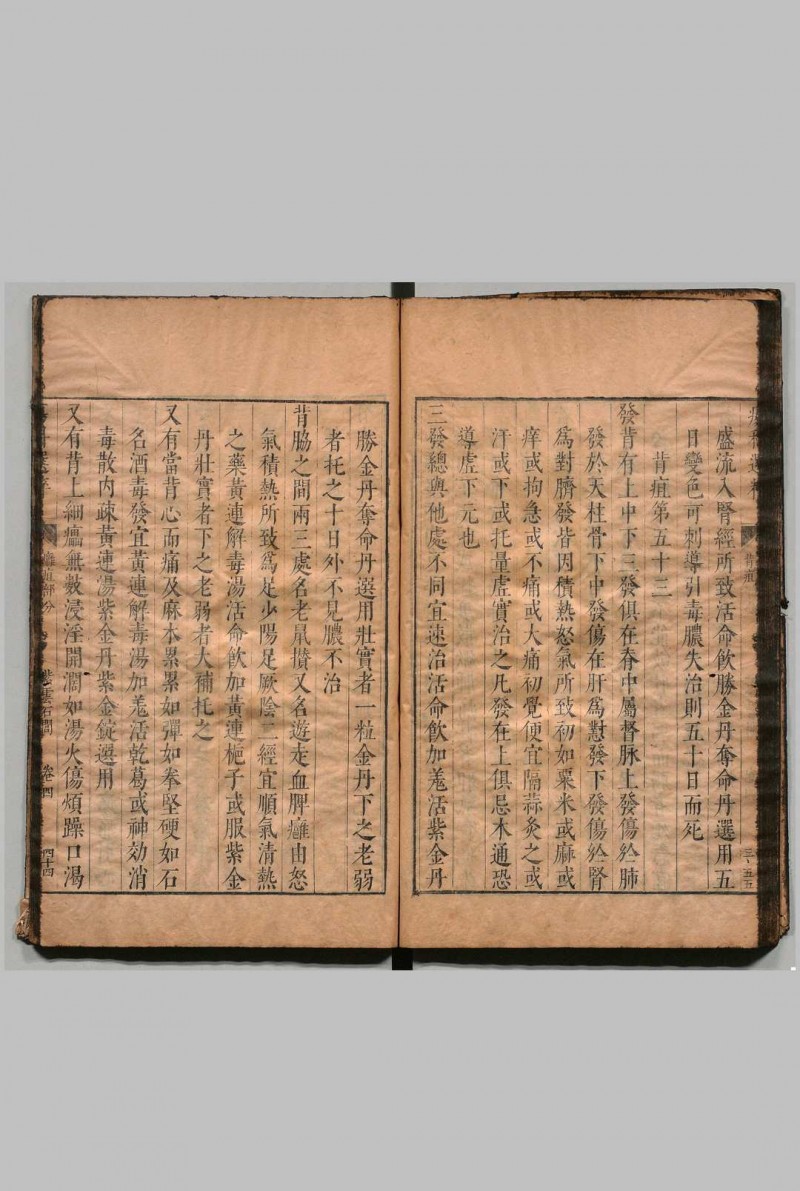 盛流入腎經所致活命飲勝金丹奪命丹選用五
日變色可刺導引毒膿失治則五十日而死
背疽第五十三
發背有上中下三發俱在脊中屬督脉上發傷於肺
發於天柱骨下中發傷在肝爲懟發下發傷於腎
爲對臍發皆因積熱怒氣所致初如粟米或麻或
痒或拘急或不痛或大痛初覺便宜隔蒜灸之或
汗或下或托量虛實治之凡發在上俱忌木通恐
導虛下元也
三發總與他處不同宜速治活命飲加羗活紫金丹
勝金丹奪命丹選用壯實者一粒金丹下之老弱
者托之十日外不見膿不治
背脇之間兩三處名老鼠攢又名遊走血脾癰由怒
氣積熱所致爲足少陽足厥陰二經宜順氣清熱
之藥黃連解毒湯活命飲加黃連梔子或服紫金
丹壯實者下之老弱者大補托之
又有當背心而痛及麻木累累如彈如拳堅硬如石
名酒毒發宜黃連解毒湯加羗活乾葛或神効消
毒散内疎黃連湯紫金丹紫金錠選用
又有背上細瘟無數浸淫開濶如湯火傷煩躁口渴
紫雲石門 卷四 四十四